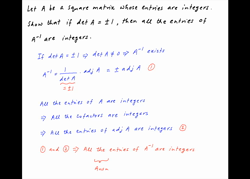 Let A be a square matrix whose entries are integers.
Show that if det A = ±1, then all the entries of
A⁻¹ are integers.
If det A = ±1 ⇒ det A ≠ 0 ⇒ A⁻¹ exists
A⁻¹ = 1/det A · adj A = ± adj A ①
= ±1
All the entries of A are integers
⇒ All the cofactors are integers
⇒ All the entries of adj A are integers ②
① and ② ⇒ All the entries of A⁻¹ are integers